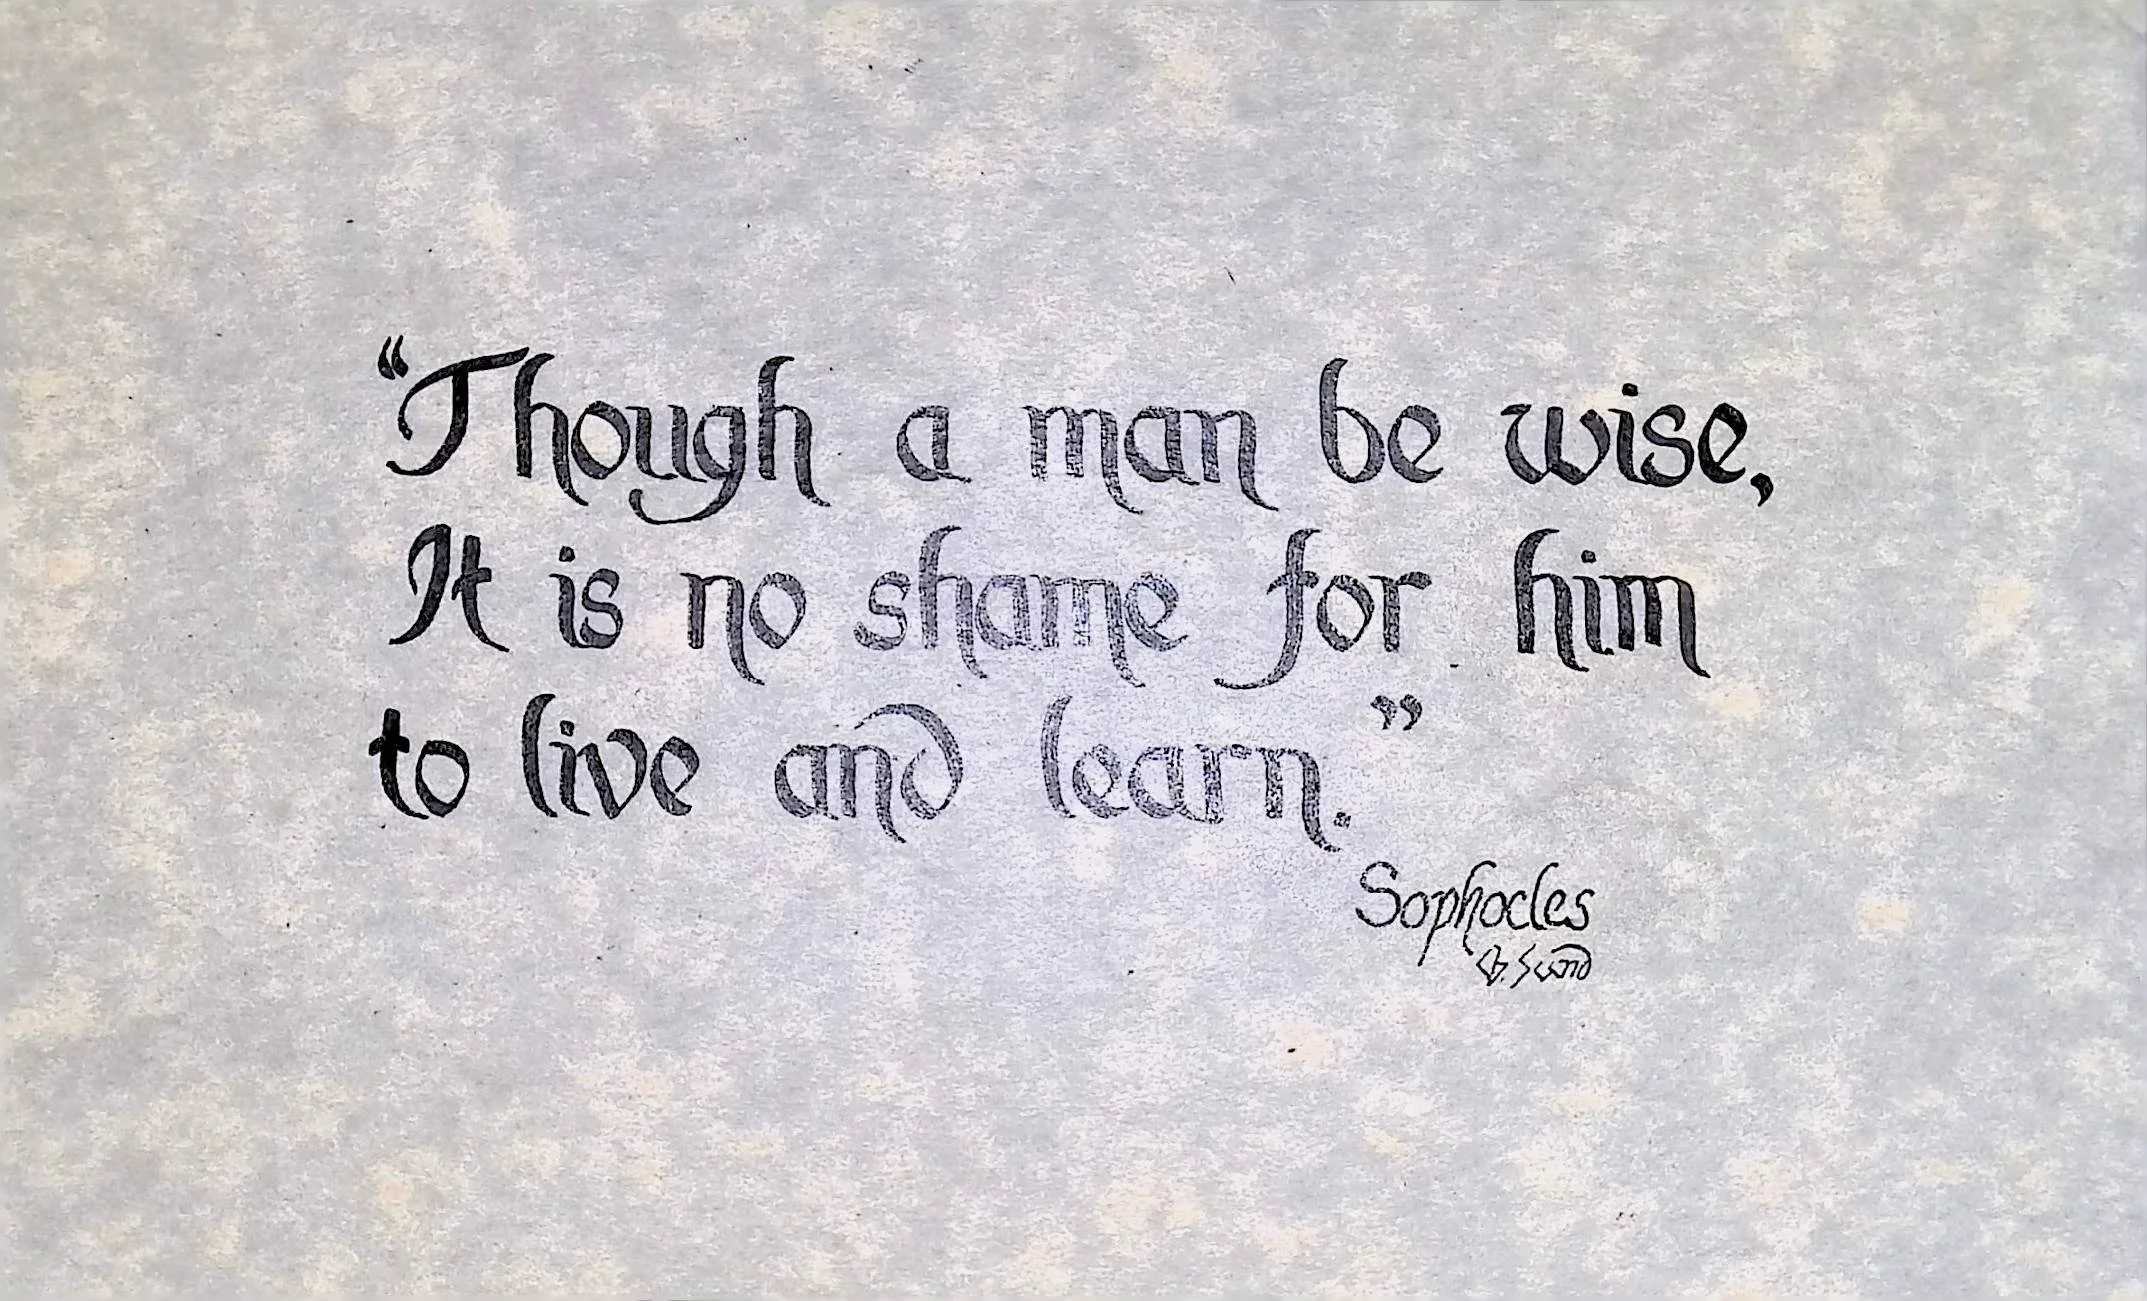 “Though a man be wise,
It is no shame for him
to live and learn.”
Sophocles